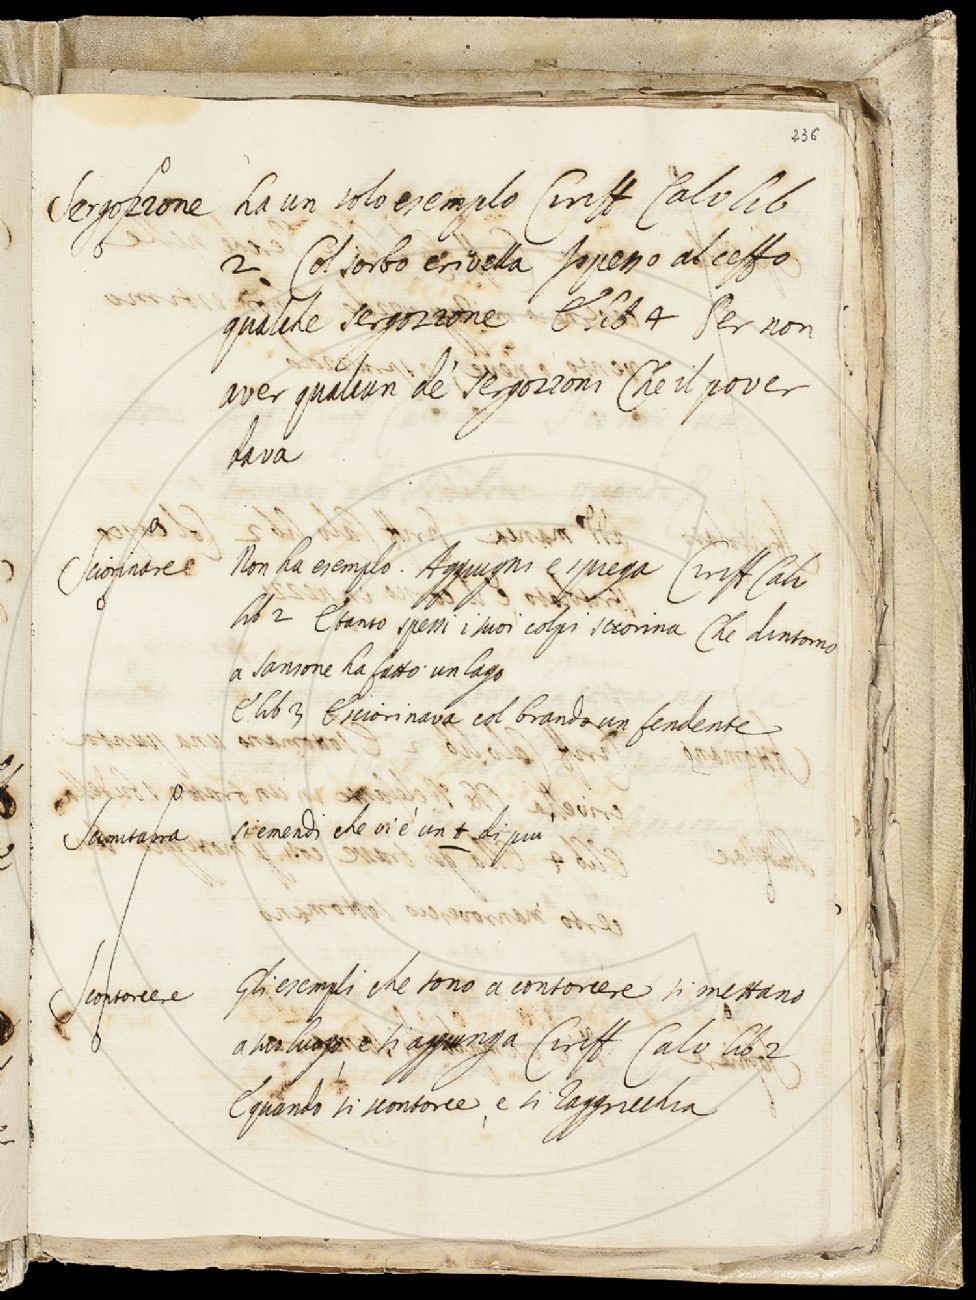 236
Sergozzone ha un solo esemplo Ciriff Calv lib
2 Col sorbo e rivella spesso al ceffo
qualche sergozzone E lib 4 Per non
aver qualcun de' sergozzoni Che il pover
dava
Sciorinare Non ha esemplo. Aggiugni e spiega Ciriff Calv
lib 2 E tanto spessi i suoi colpi sciorina Che dintorno
a Sansone ha fatto un lago
E lib 3 E sciorinava col brando un fendente
Scimitarra si emendi che vi è un t di più
Scontorcere Gli esempli che sono a contorcere si mettano
a suo luogo e si aggiunga Ciriff Calv lib 2
E quando si scontorce, e si raggricchia